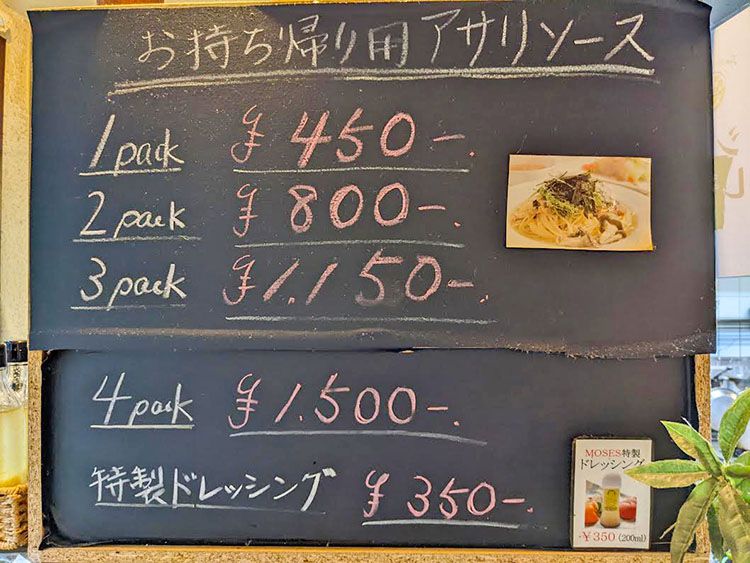 お持ち帰り用アサリソース
1pack ¥450-.
2pack ¥800-.
3pack ¥1,150-.
4pack ¥1,500-.
特製ドレッシング ¥350-.
MOSES特製
ドレッシング
-¥350(200ml)